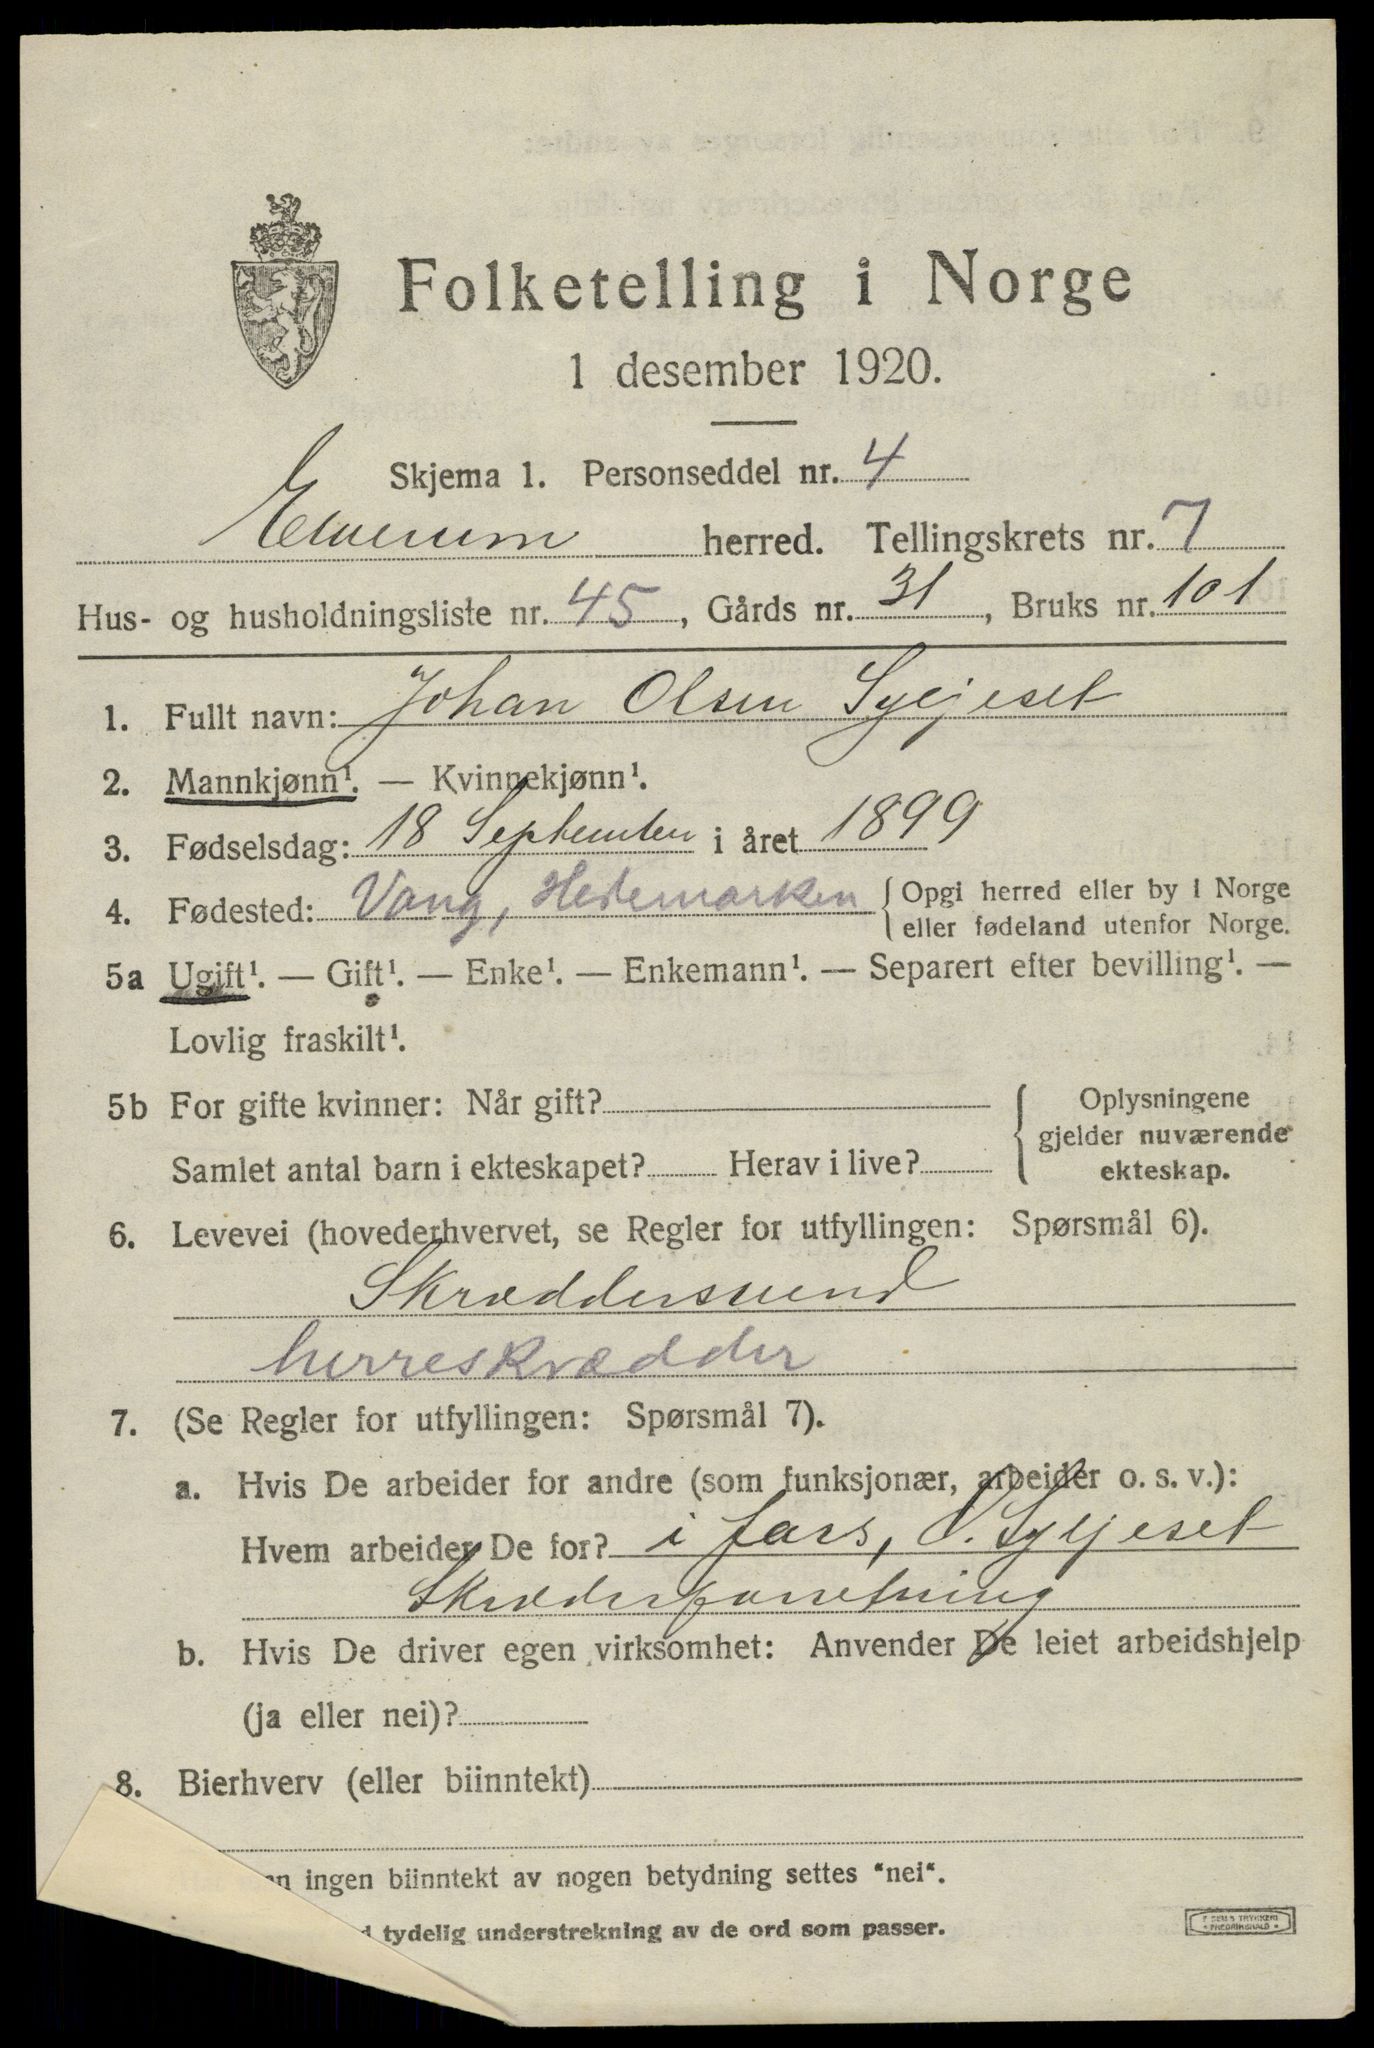 Folketelling i Norge
1 desember 1920.
Skjema 1. Personseddel nr. 4
Elverum herred. Tellingskrets nr. 7
Hus- og husholdningsliste nr. 45, Gårds nr. 31, Bruks nr. 101
1. Fullt navn: Johan Olsen Syljeset
2. Mannkjønn¹. — Kvinnekjønn¹.
3. Fødselsdag: 18 September i året 1899
4. Fødested: Vang, Hedemarken {Opgi herred eller by i Norge
eller fødeland utenfor Norge.
5a Ugift¹. — Gift¹. — Enke¹. — Enkemann¹. — Separert efter bevilling¹. —
Lovlig fraskilt¹.
5b For gifte kvinner: Når gift? {Oplysningene
gjelder nuværende
Samlet antal barn i ekteskapet? Herav i live? ekteskap.
6. Levevei (hovederhvervet, se Regler for utfyllingen: Spørsmål 6).
Skræddersvend
herreskrædder
7. (Se Regler for utfyllingen: Spørsmål 7).
a. Hvis De arbeider for andre (som funksjonær, arbeider o. s. v.):
Hvem arbeider De for? i fars, O. Syljeset
Skræderforretning
b. Hvis De driver egen virksomhet: Anvender De leiet arbeidshjelp
(ja eller nei)?
8. Bierhverv (eller biinntekt)
ingen biinntekt av nogen betydning settes "nei".
tydelig understrekning av de ord som passer.